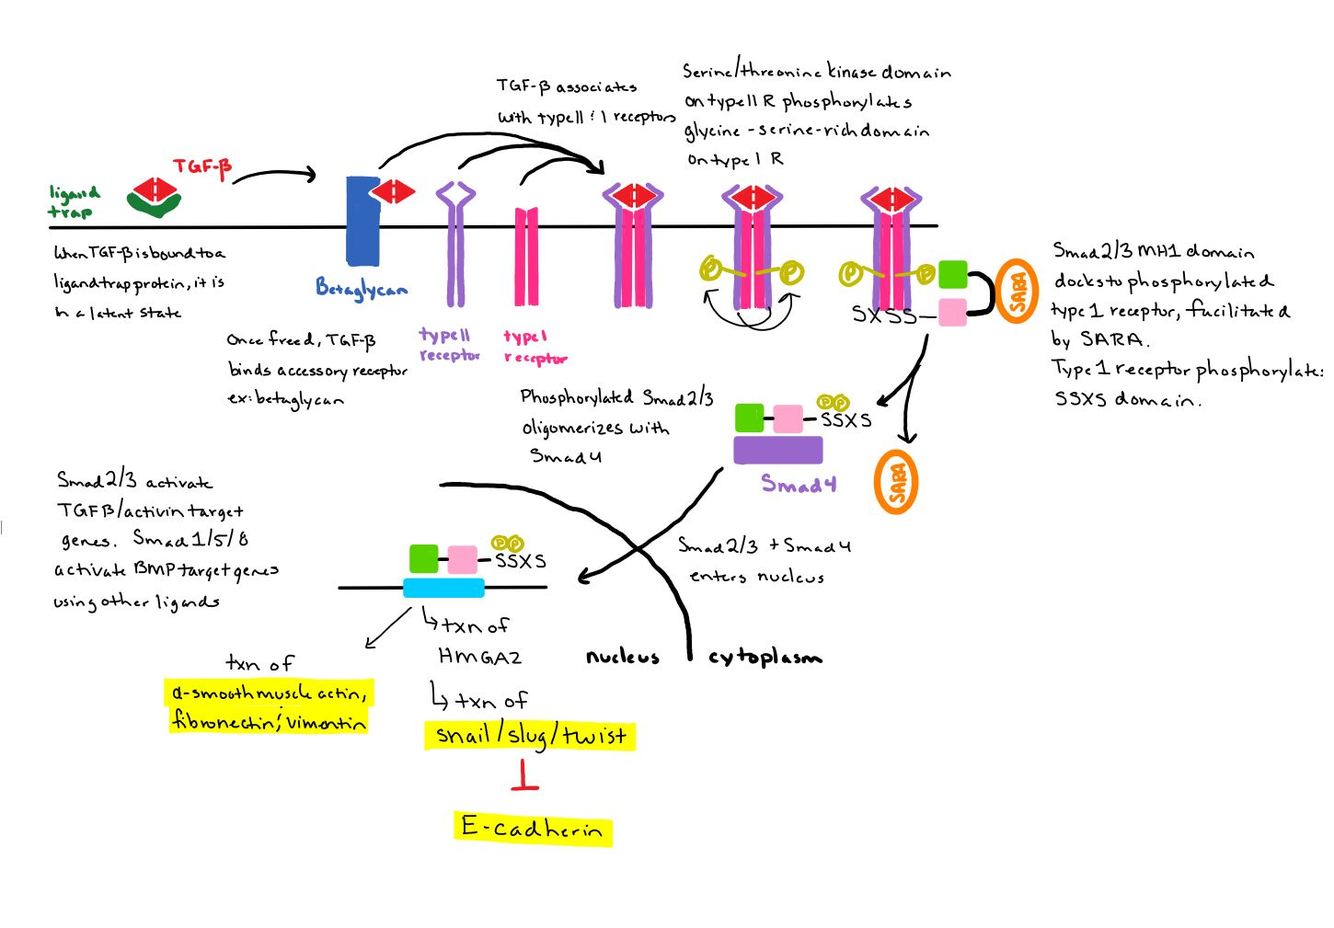 TGF-β associates
with type II & I receptors
Serine/threonine kinase domain
on type II R phosphorylates
glycine-serine-rich domain
on type I R
TGF-β
ligand
trap
When TGF-β is bound to a
ligand trap protein, it is
in a latent state
Betaglycan
Once freed, TGF-β
binds accessory receptor
ex: betaglycan
type II
receptor
type I
receptor
P
P
P
P
SXSS
SARA
Smad 2/3 MH1 domain
docks to phosphorylated
type 1 receptor, facilitated
by SARA.
Type 1 receptor phosphorylates
SSXS domain.
Phosphorylated Smad 2/3
oligomerizes with
Smad 4
P P
SSXS
Smad4
SARA
Smad 2/3 activate
TGFβ/activin target
genes. Smad 1/5/8
activate BMP target genes
using other ligands
P P
SSXS
Smad 2/3 + Smad 4
enters nucleus
nucleus
cytoplasm
txn of
HMGA2
txn of
α-smooth muscle actin,
fibronectin; vimentin
txn of
snail/slug/twist
E-cadherin